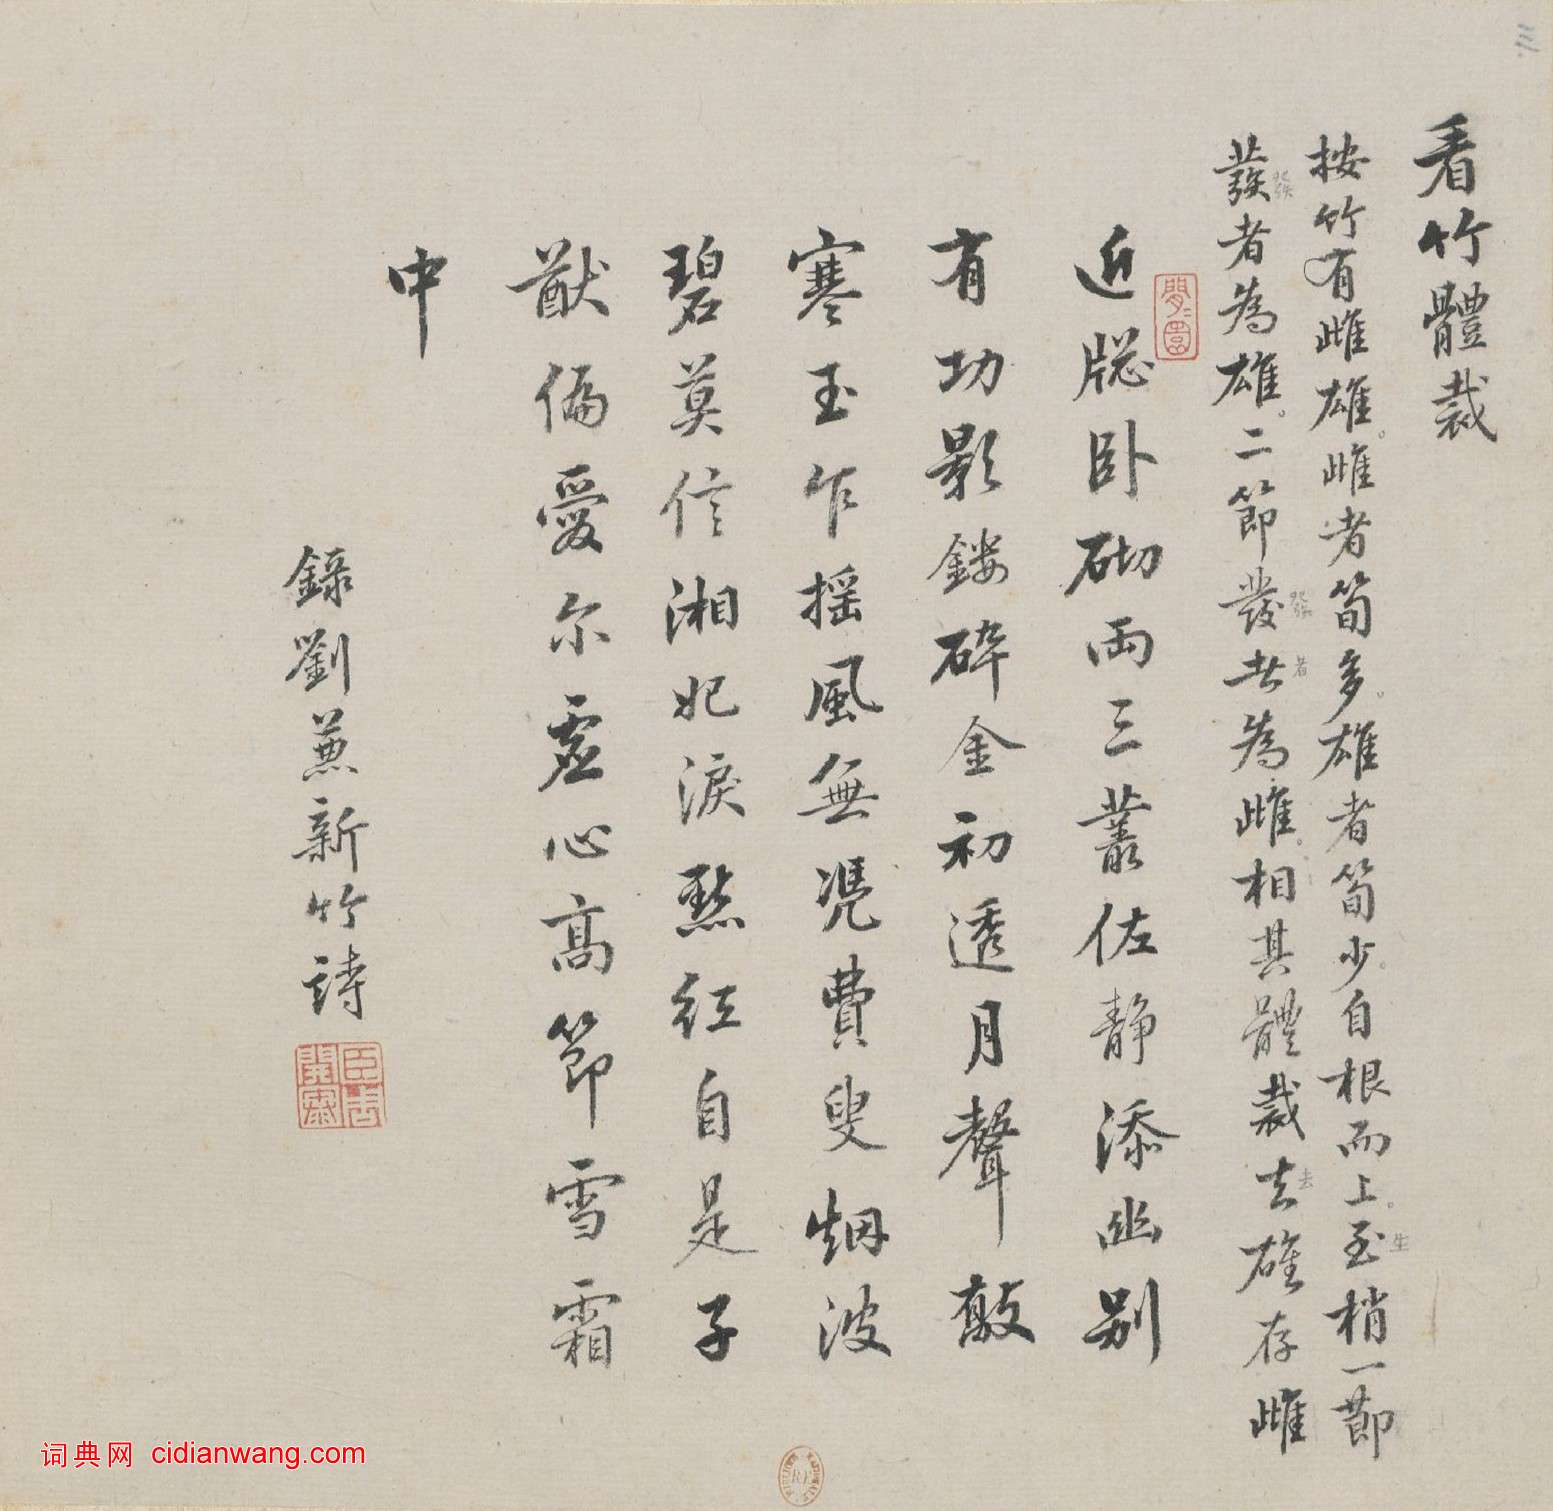 看竹體裁
按竹有雌雄雌者筍多雄者筍少自根而上至梢一節
發者為雄二節發者為雌相其體裁去雄存雌
近牎卧砌兩三叢佐静添幽别
有功影鏤碎金初透月聲敲
寒玉乍摇風無凴費叟烟波
碧莫信湘妃淚點紅自是子
猷偏愛尔虚心高節雪霜
中
錄劉兼新竹詩
词典网 cidianwang.com